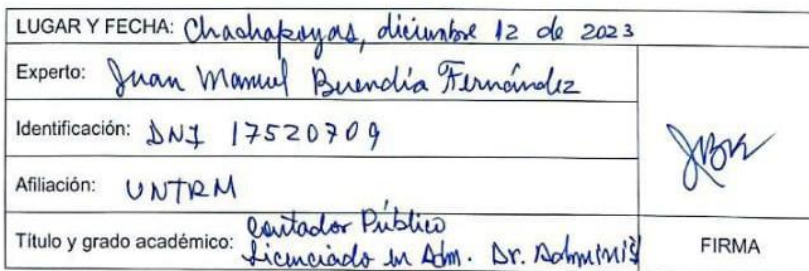 LUGAR Y FECHA: Chachapoyas, diciembre 12 de 2023
Experto: Juan Manuel Buendía Fernández
Identificación: DNI 17520709
Afiliación: UNTRM
Título y grado académico: Contador Público
Licenciado en Adm. Dr.
FIRMA